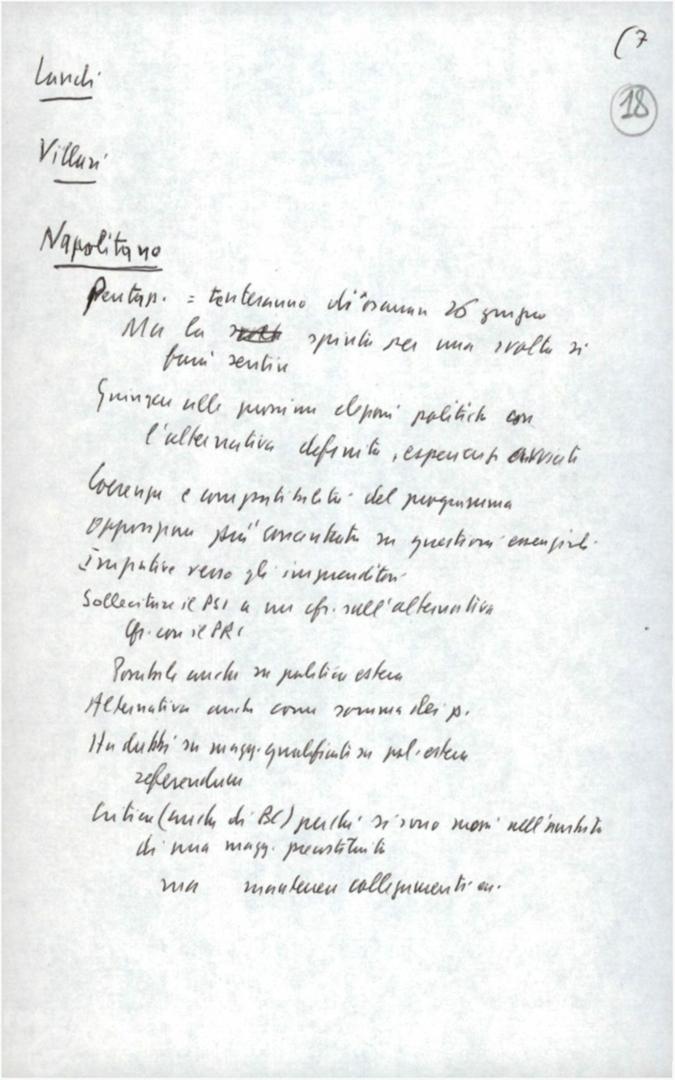 (7
18
Landi
Villari
Napolitano
Pentap. = tenteranno di osannare 26 giugno
Ma la spinta per una svolta si
farà sentire
Giungere alle prossime elezioni politiche con
l'alternativa definita,
Coerenza e compatibilità del programma
Opposizione più concentrata su questioni essenziali
Iniziative verso gli imprenditori
Sollecitare il PSI a un cfr. sull'alternativa
Cfr. con il PRI
Possibile anche su politica estera
Alternativa anche come somma dei p.
Ha dubbi su magg. qualificati su pol. estera
referendum
Critica (anche di BC) perché si sono mossi nell'ambito
di una magg. precostituita
ma mantenere collegamenti